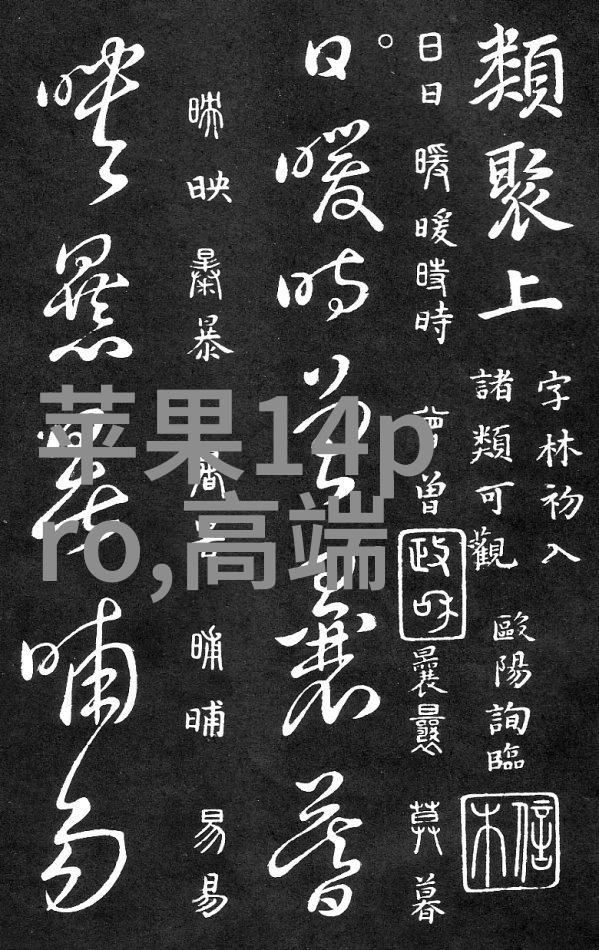 類聚上
字林初入
諸類可觀
歐陽詢臨
日日 暖暖時時 曾曾
政和
莫暮
日暖時曾曩暮
映 暴暴
晡晡
易易
映暴
晡易
苹果14p
ro,高端